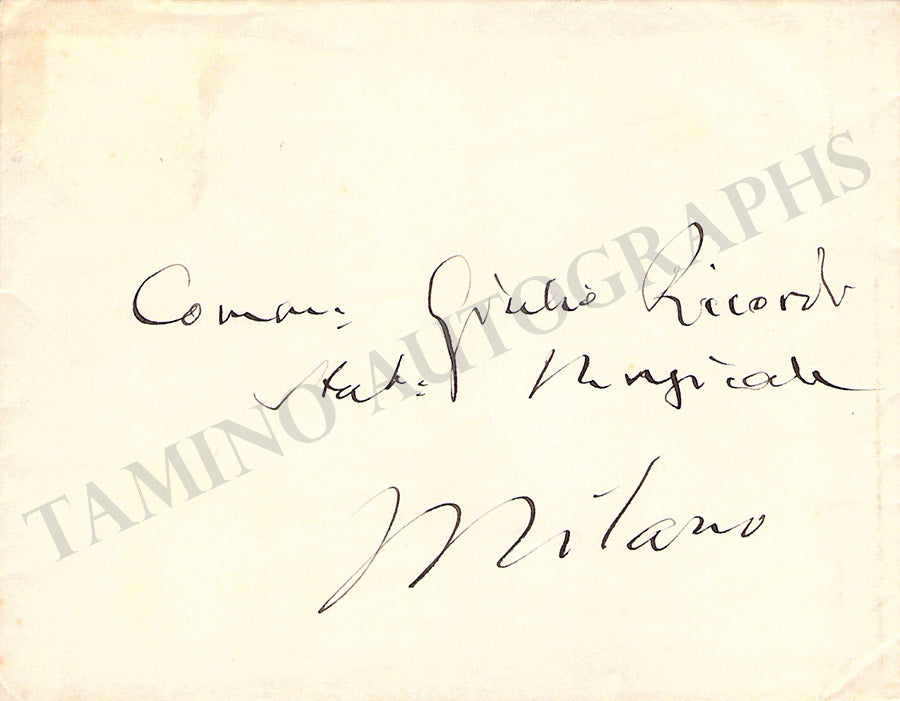 Comm: Giulio Ricordi
Stab: Musicale
Milano
TAMINO AUTOGRAPHS